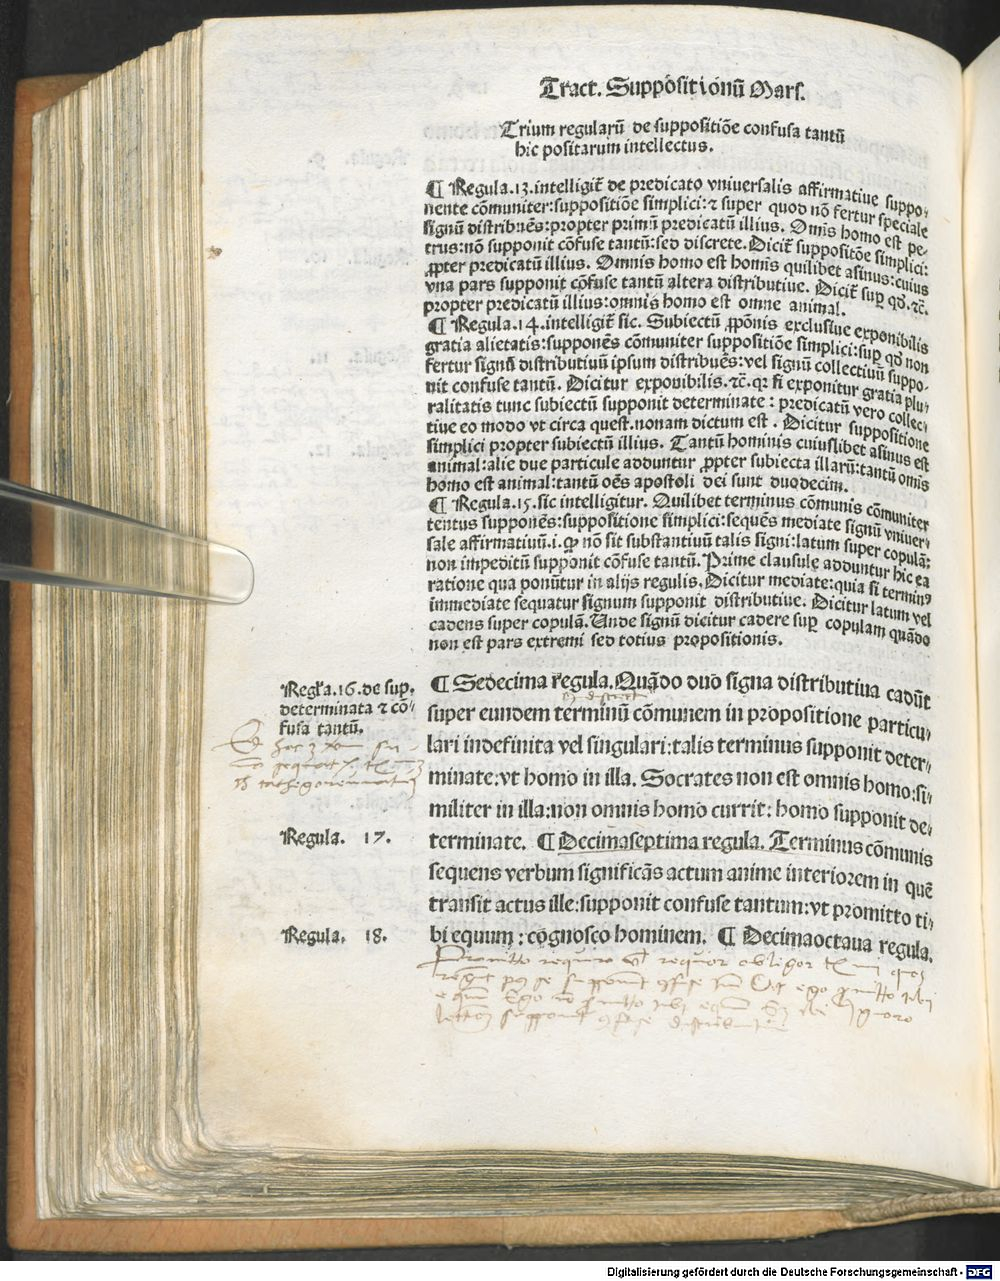 Tract. Suppositionū Mars.
Trium regularū de suppositiōe confusa tantū
hic positarum intellectus.
¶ Regula.13.intelligit̄ de predicato vniuersalis affirmatiue suppo⸗
nente cōmuniter:suppositiōe simplici:⁊ super quod nō fertur speciale
signū distribuēs:propter primū predicatū illius. Omīs homo est pe⸗
trus:nō supponit cōfuse tantū:sed discrete. Dicit̄ suppositōe simplici:
ꝓpter predicatū illius. Omnis homo est homīs quilibet asinus:cuius
vna pars supponit cōfuse tantū altera distributiue. Dicit̄ suꝑ qd̄.⁊c̄.
propter predicatū illius:omnis homo est omne animal.
¶ Regula.14.intelligit̄ sic. Subiectū ꝓpōnis exclusiue exponibilis
gratia alietatis:supponēs cōmuniter suppositiōe simplici:suꝑ qd̄ non
fertur signū distributiuū ipsum distribuēs:vel signū collectiuū suppo⸗
nit confuse tantū. Dicitur exponibilis.⁊c̄.qꝛ si exponitur gratia plu⸗
ralitatis tunc subiectū supponit determinate: predicatū vero collec⸗
tiue eo modo vt circa quest.nonam dictum est. Dicitur suppositione
simplici propter subiectū illius. Tantū hominis cuiuslibet asinus est
animal:alie due particule adduntur ꝓpter subiecta illarū:tantū omīs
homo est animal:tantū oēs apostoli dei sunt duodecim.
¶ Regula.15.sic intelligitur. Quilibet terminus cōmunis cōmuniter
tentus supponēs:suppositione simplici:sequēs mediate signū vniuer⸗
sale affirmatiuū.i.ꝙ nō sit substantiuū talis signi:latum super copulā:
non impeditū supponit cōfuse tantū. Prime clausule adduntur hic ea
ratione qua ponūtur in alijs regulis. Dicitur mediate:quia si terminꝰ
immediate sequatur signum supponit distributiue. Dicitur latum vel
cadens super copulā. Unde signū dicitur cadere suꝑ copulam quādo
non est pars extremi sed totius propositionis.
Regl̄a.16.de sup.
determinata ⁊ cō⸗
fusa tantū.
¶ Sedecima regula. Quādo duo signa distributiua cadūt
super eundem terminū cōmunem in propositione particu⸗
lari indefinita vel singulari:talis terminus supponit deter⸗
minate:vt homo in illa. Socrates non est omnis homo:si⸗
militer in illa:non omnis homo currit: homo supponit de⸗
Regula. 17.
terminate. ¶ Decimaseptima regula. Terminus cōmunis
sequens verbum significās actum anime interiorem in quē
transit actus ille:supponit confuse tantum:vt promitto ti⸗
Regula. 18.
bi equum: cognosco hominem. ¶ Decimaoctaua regula.
Promitto requiro vel requiror obligor
Digitalisierung gefördert durch die Deutsche Forschungsgemeinschaft - DFG